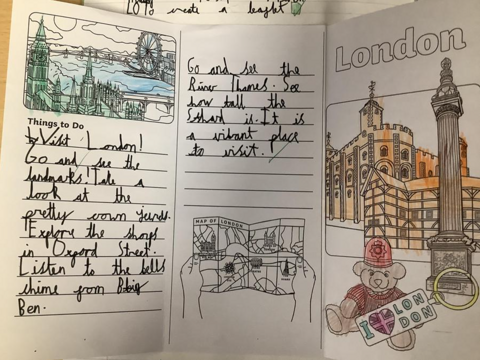 LO to create a leaflet
Things to Do
Visit London!
Go and see the
landmarks! Take a
look at the
pretty crown jewels.
Explore the shops
in Oxpord Street.
Listen to the bells
chime from Big
Ben.
Go and see the
River Thames. See
how tall the
Sshard is. It is
a vibrant place
to visit.
MAP OF LONDON
London
I
LON
DON